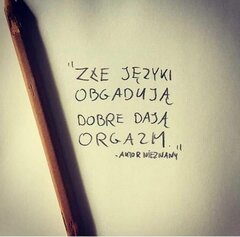 "ZŁE JĘZYKI
OBGADUJĄ
DOBRE DAJĄ
ORGAZM."
- AUTOR NIEZNANY